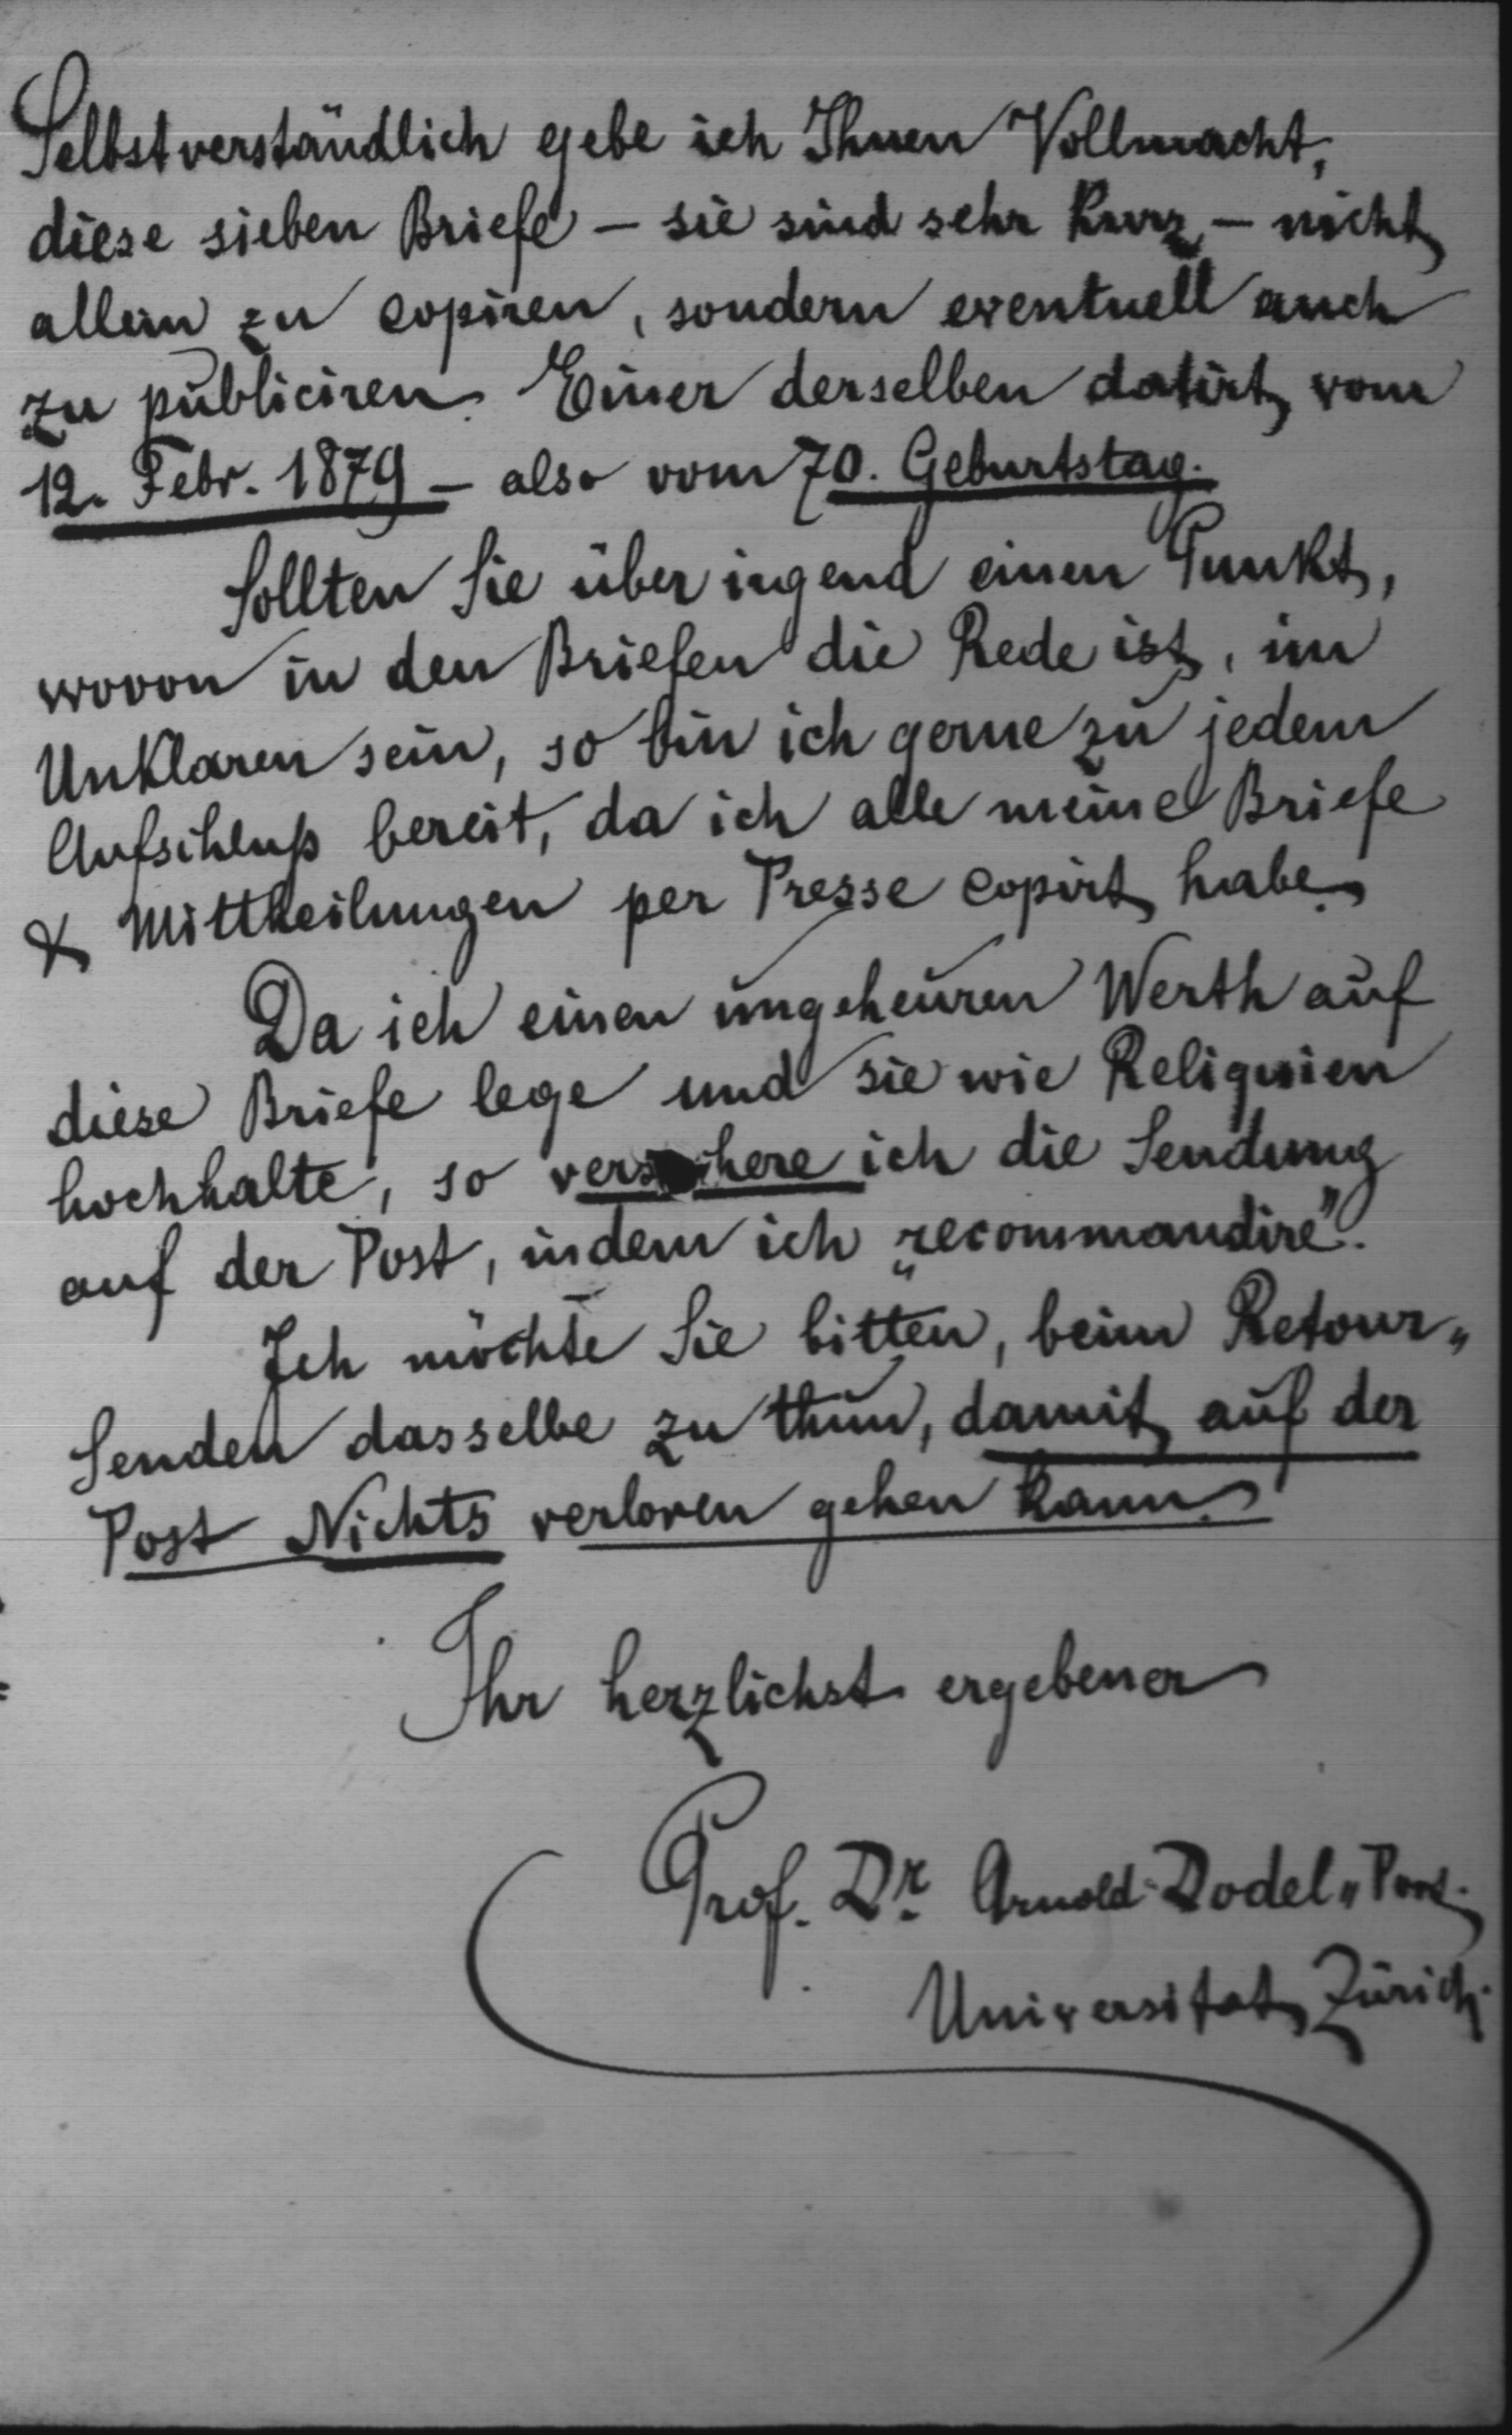 Selbstverständlich gebe ich Ihnen Vollmacht,
diese sieben Briefe – sie sind sehr kurz – nicht
allein zu copiren, sondern eventuell auch
zu publiciren. Einer derselben datirt vom
12. Febr. 1879 – also vom 70. Geburtstag.
Sollten Sie über irgend einen Punkt,
wovon in den Briefen die Rede ist, im
Unklaren sein, so bin ich gerne zu jedem
Aufschluß bereit, da ich alle meine Briefe
& Mittheilungen per Presse copirt habe.
Da ich einen ungeheuren Werth auf
diese Briefe lege und sie wie Reliquien
hochhalte, so versichere ich die Sendung
auf der Post, indem ich „recommandire".
Ich möchte Sie bitten, beim Retour„
Senden dasselbe zu thun, damit auf der
Post Nichts verloren gehen kann.
Ihr herzlichst ergebener
Prof. Dr. Arnold Dodel„Port.
Universität Zürich.